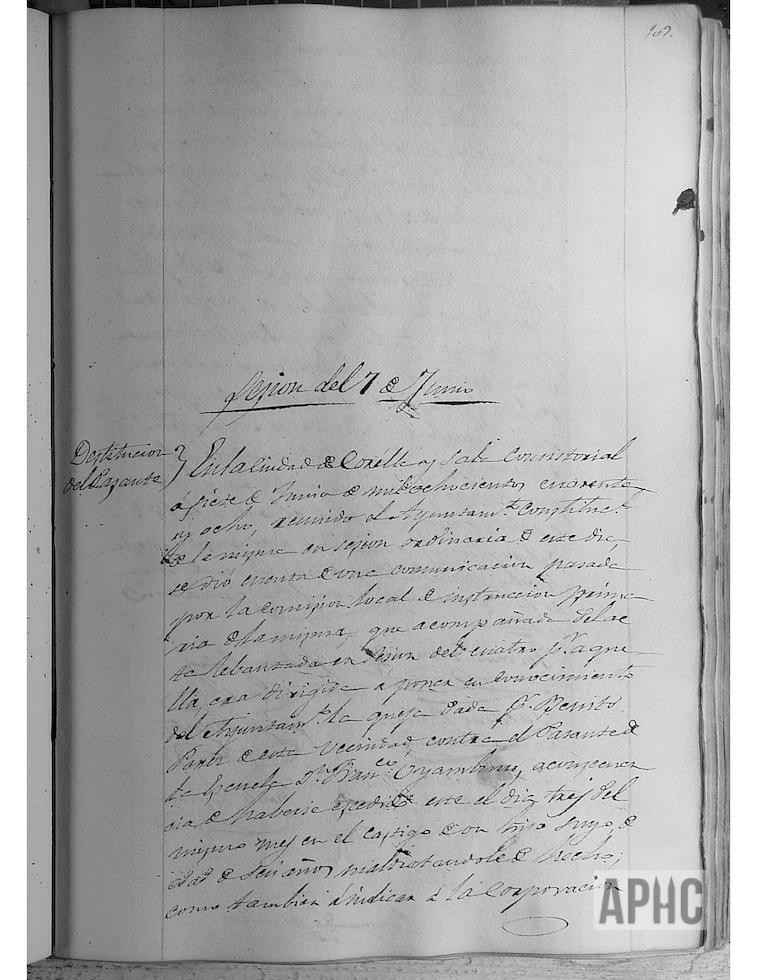 109.
Sesion del 7 de Junio
Destitucion
del Pasante
En la Ciudad de Corella y Sala Consistorial
á siete de Junio de mil ochocientos cuarenta
y ocho, reunido el Ayuntamto. Constitucl.
de la misma en sesion ordinaria de este dia,
se dió cuenta de una comunicacion pasada
por la comision local de instruccion prima
ria de la misma, que acompañada del ac
ta lebantada en sesion del cuatro pr. aque
lla, era dirigida a poner en conocimiento
del Ayuntamto. la queja dada pr. Benito
de esta Vecindad, contra el Pasante de
la Escuela Dn. Franco. Oyamburu, a consecuen
cia de haberse escedido este el dia tres del
mismo mes en el castigo de un hijo suyo, de
edad de seis años maltratandole de hecho;
como tambien á indicar a la Corporacion
APHC